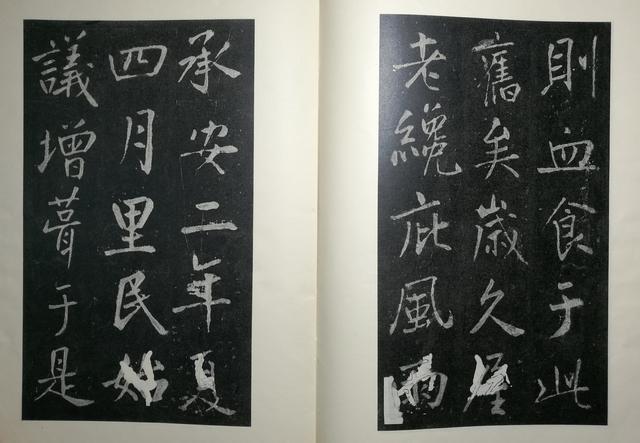 則血食于此
舊矣歲久屋
老纔庇風雨
承安二年夏
四月里民始
議增葺于是